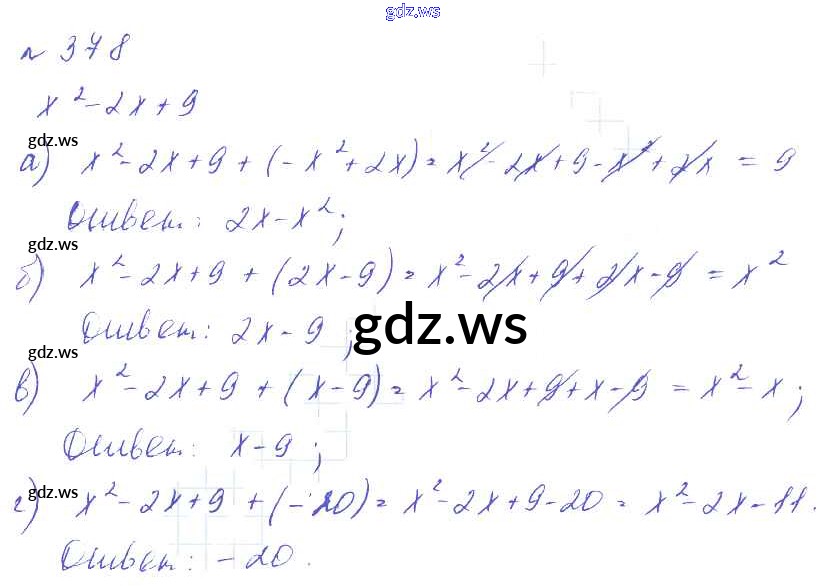 gdz.ws
№ 378
x² - 2x + 9
gdz.ws
а) x² - 2x + 9 + (-x² + 2x) = x² - 2x + 9 - x² + 2x = 9
Ответ: 2x - x²;
gdz.ws
б) x² - 2x + 9 + (2x - 9) = x² - 2x + 9 + 2x - 9 = x²
Ответ: 2x - 9;
gdz.ws
gdz.ws
в) x² - 2x + 9 + (x - 9) = x² - 2x + 9 + x - 9 = x² - x;
Ответ: x - 9;
gdz.ws
г) x² - 2x + 9 + (-20) = x² - 2x + 9 - 20 = x² - 2x - 11.
Ответ: -20.